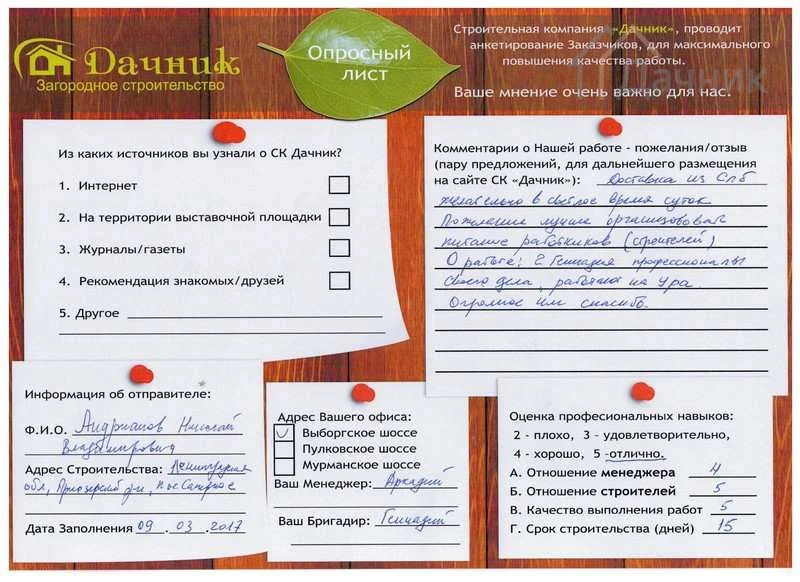 Дачник
Загородное строительство
Опросный
лист
Строительная компания «Дачник», проводит
анкетирование Заказчиков, для максимального
повышения качества работы.
Ваше мнение очень важно для нас.
Дачник
Из каких источников вы узнали о СК Дачник?
1. Интернет
2. На территории выставочной площадки
3. Журналы/газеты
4. Рекомендация знакомых/друзей
5. Другое
Комментарии о Нашей работе - пожелания/отзыв
(пару предложений, для дальнейшего размещения
на сайте СК «Дачник»): Доставка из Спб
желательно в светлое время суток
Пожелание лучше организовать
питание работников (строителей)
О работе: 2 Геннадия профессионалы
своего дела, работают на Ура.
Огромное им спасибо.
Информация об отправителе:
Ф.И.О. Андрианов Николай
Владимирович
Адрес Строительства: Ленинградская
обл, Приозерский р-н, пос Сапёрное
Дата Заполнения 09 .03 .2017
Адрес Вашего офиса:
Выборгское шоссе
Пулковское шоссе
Мурманское шоссе
Ваш Менеджер: Аркадий
Ваш Бригадир: Геннадий
Оценка професиональных навыков:
2 - плохо, 3 - удовлетворительно,
4 - хорошо, 5 -отлично.
А. Отношение менеджера 4
Б. Отношение строителей 5
В. Качество выполнения работ 5
Г. Срок строительства (дней) 15